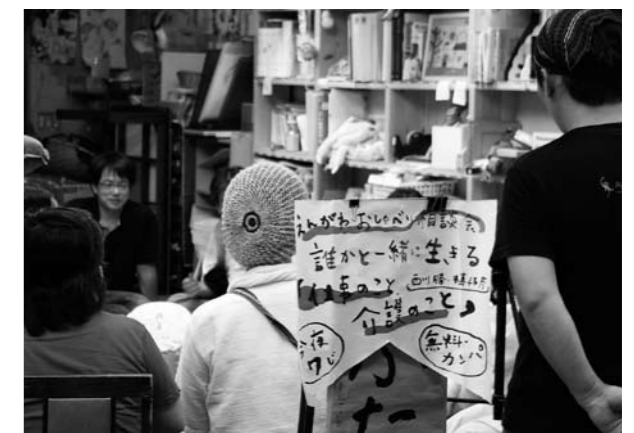 えんがわおしゃべり相談会
誰かと一緒に生きる
「仕事のこと
介護のこと」
西川勝
今夜
7じ
無料・
カンパ